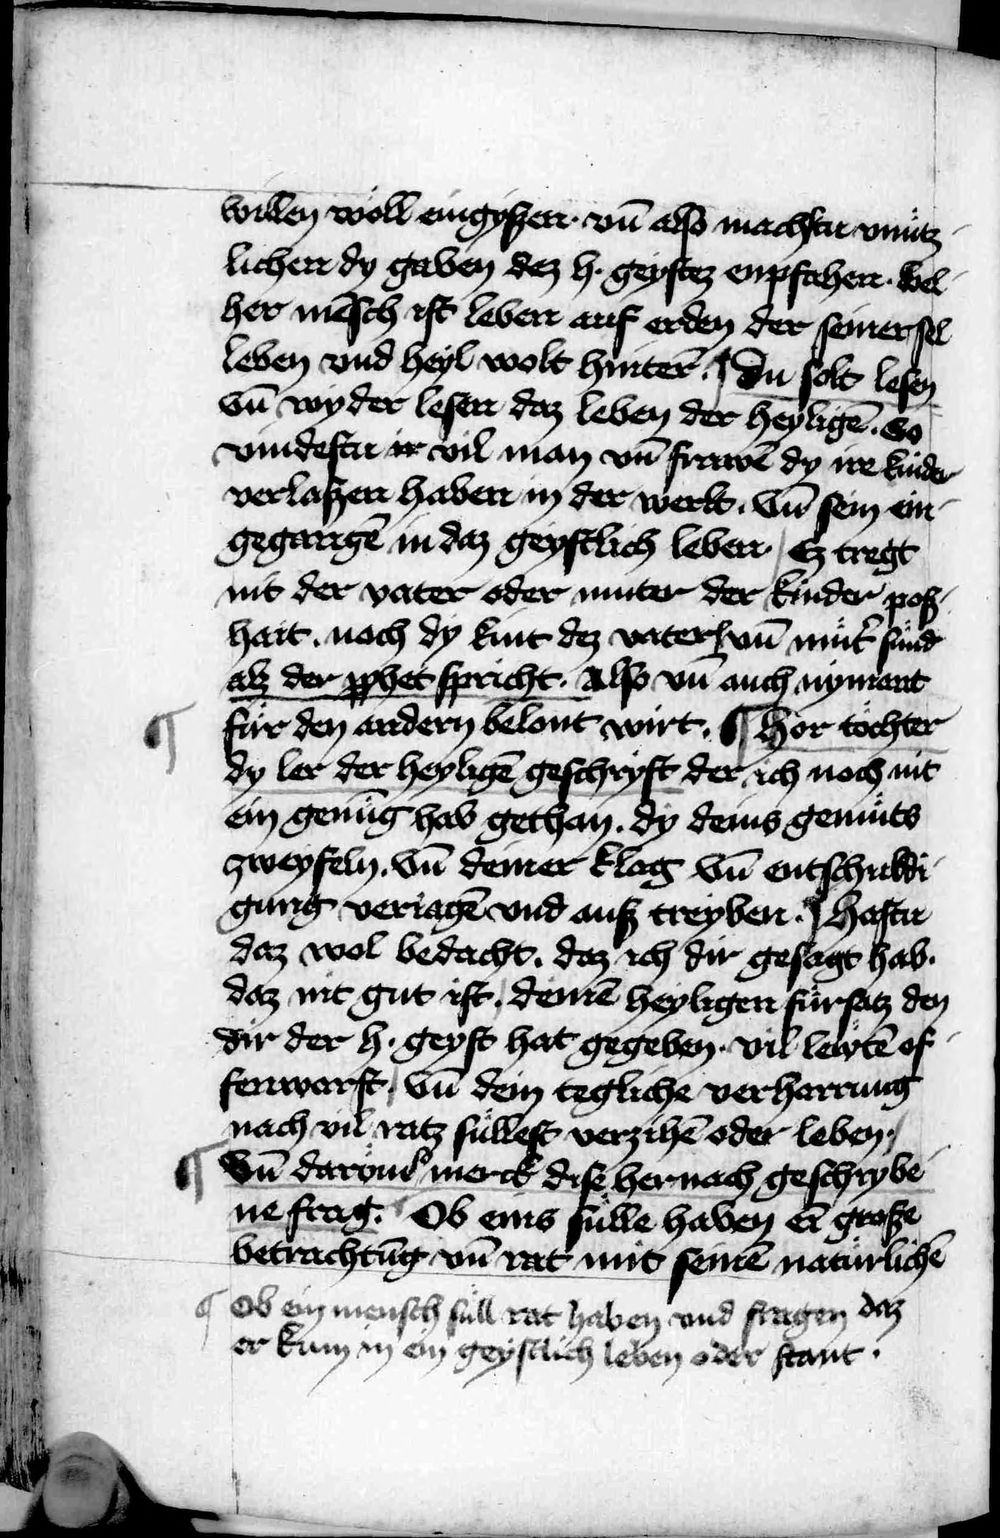 willen wöll eingyssen. vn̄ also machstu vnnütz-
lichen dy gaben dez h. geystez enpfahen. Wel-
her mēsch ist leben auf erden der seiner sel
leben vnd heyl wolt hintē. ¶ Du solt lesen
vn̄ wyder lesen daz leben der heyligē. So
vindestu ir vil man vn̄ frawē dy ire kinder
verlaßen haben in der werlt. vn̄ sein ein-
gegangē in daz geystlich leben. Ez tregt
nit der vater oder muter der kinder poß-
hait. noch dy kint dez vaters vn̄ müt̄ sünd
alz der ꝓphet spricht. Also vn̄ auch nymant
für den andern belont wirt. ¶ Hor töchter
dy ler der heyligē geschryft der ich noch nit
ein genüg hab gethan. dy deins gemüts
zweyfeln. vn̄ deiner klag vn̄ entschuldi-
gung veriagē vnd auß treyben. ¶ Hastu
daz wol bedacht. daz ich dir gesagt hab.
daz nit gut ist. deinē heyligen fürsatz den
dir der h. geyst hat gegeben. vil lewtē of-
fenwarst. vn̄ dein tegliche verharrung
nach vil ratz süllest verzihē oder leben.
¶ Vn̄ darüm merck dise hernach geschrybe-
ne frag. Ob eins sülle haben eī große
betrachtūg vn̄ rat mit seinē natürlichē
¶ Ob ein mensch süll rat haben vnd fragen daz
er kum in ein geystlich leben oder stant.